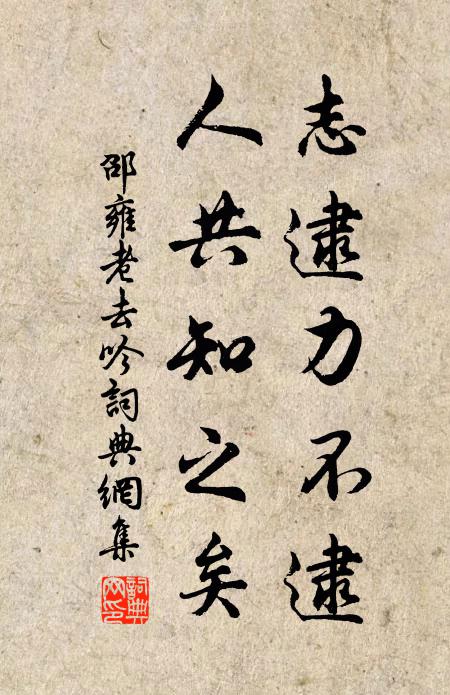 志逮力不逮
人共知之矣
邵雍老去吟詞典網集
詞典網印